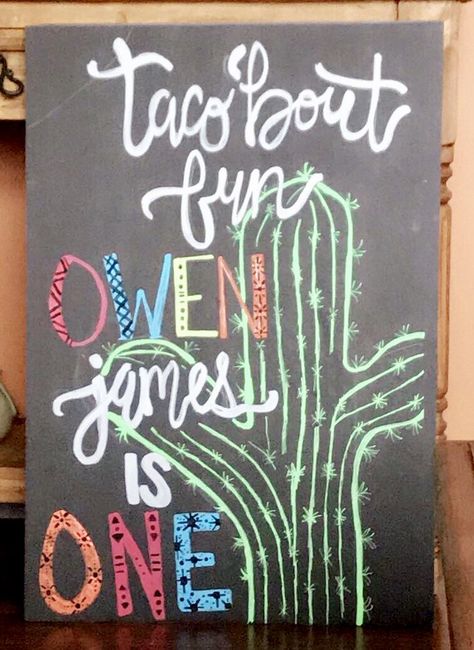 taco 'bout
fun
OWEN
james
IS
ONE